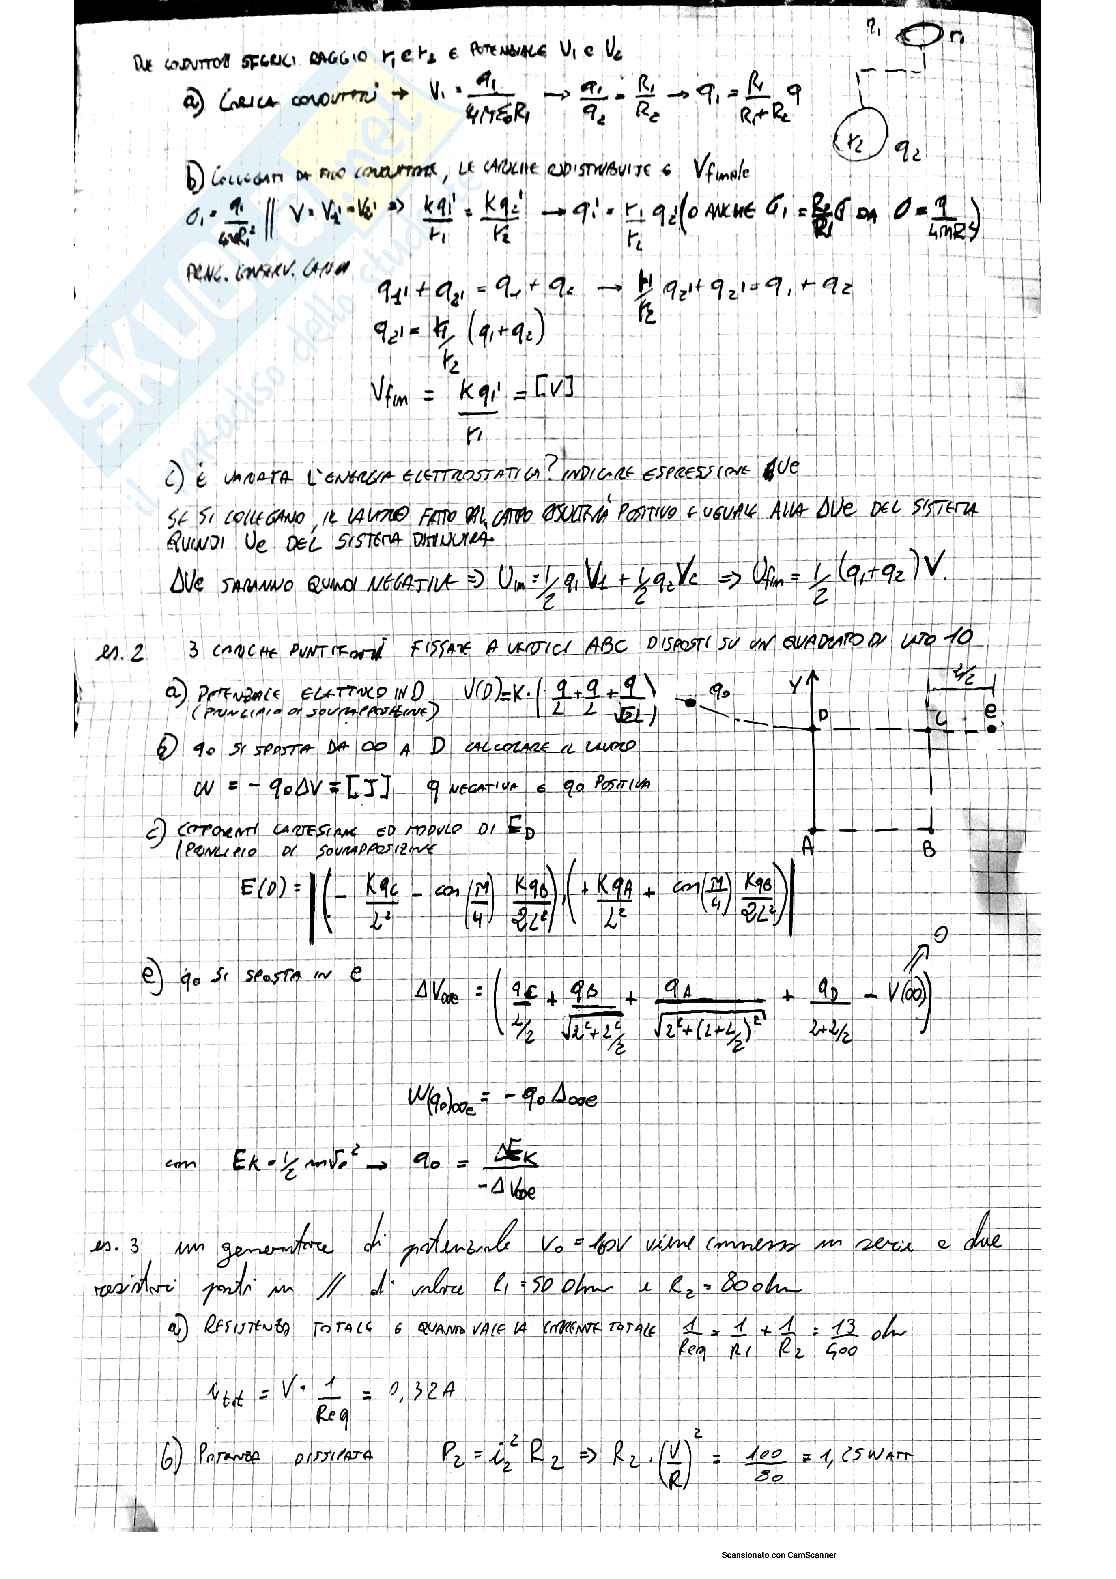 DUE CONDUTTORI SFERICI RAGGIO r1 e r2 E POTENZIALE V1 e V2
r1
a) CARICA CONDUTTORI → V1 = q1/4πε0R1 → q1/q2 = R1/R2 → q1 = R1/R1+R2 q
r2 q2
b) COLLEGATI DA FILO CONDUTTORE, LE CARICHE RIDISTRIBUITE e Vfinale
σ1 = q1/4πR1² // V = V1' = V2' ⇒ kq1'/r1 = kq2'/r2 → q1' = r1/r2 q2' (O ANCHE σ1 = R2/R1 σ DA σ = q/4πR²)
PRINC. CONSERV. CARICA
q1' + q2' = q1 + q2 → r1/r2 q2' + q2' = q1 + q2
q2' = r1/r2 (q1+q2)
Vfin = kq1'/r1 = [V]
c) È VARIATA L'ENERGIA ELETTROSTATICA? INDICARE ESPRESSIONE ΔUe
SE SI COLLEGANO, IL LAVORO FATTO DAL CAMPO RISULTERÀ POSITIVO E UGUALE ALLA ΔUe DEL SISTEMA
QUINDI Ue DEL SISTEMA DIMINUIRÀ
ΔUe SARANNO QUINDI NEGATIVE ⇒ Uin = 1/2 q1V1 + 1/2 q2V2 ⇒ Ufin = 1/2 (q1+q2) V.
es. 2 3 CARICHE PUNTIFORMI FISSATE A VERTICI ABC DISPOSTI SU UN QUADRATO DI LATO 10
a) POTENZIALE ELETTRICO IN D V(D) = K · (q/L + q/L + q/√2L)
(PRINCIPIO DI SOVRAPPOSIZIONE)
q0 Y D C e L/2
b) q0 SI SPOSTA DA ∞ A D CALCOLARE IL LAVORO
W = - q0ΔV = [J] q NEGATIVA E q0 POSITIVA
c) COMPONENTI CARTESIANE ED MODULO DI ED
(PRINCIPIO DI SOVRAPPOSIZINE
A B
E(D) = |(- KqC/L² - cos(π/4) KqB/2L²), (+ KqA/L² + cos(π/4) KqB/2L²)|
e) q0 SI SPOSTA IN e
ΔV∞e = (qC/L/2 + qB/√L²+L²/2 + qA/√L²+(L+L/2)² + qD/L+L/2 - V(∞)) 0
W(q0)∞e = - q0 Δ∞e
con EK = 1/2 mv0² → q0 = ΔEK/-ΔV∞e
es. 3 un generatore di potenziale V0 = 10V viene connesso in serie a due
resistori posti in // di valore R1 = 50 Ohm e R2 = 80 ohm
a) RESISTENZA TOTALE E QUANTO VALE LA CORRENTE TOTALE 1/Req = 1/R1 + 1/R2 = 13/400 ohm
itot = V · 1/Req = 0,32A
b) POTENZA DISSIPATA P2 = i2² R2 ⇒ R2 · (V/R)² = 100/80 = 1,25 WATT
SKUOLA.net
il paradiso dello studente
Scansionato con CamScanner